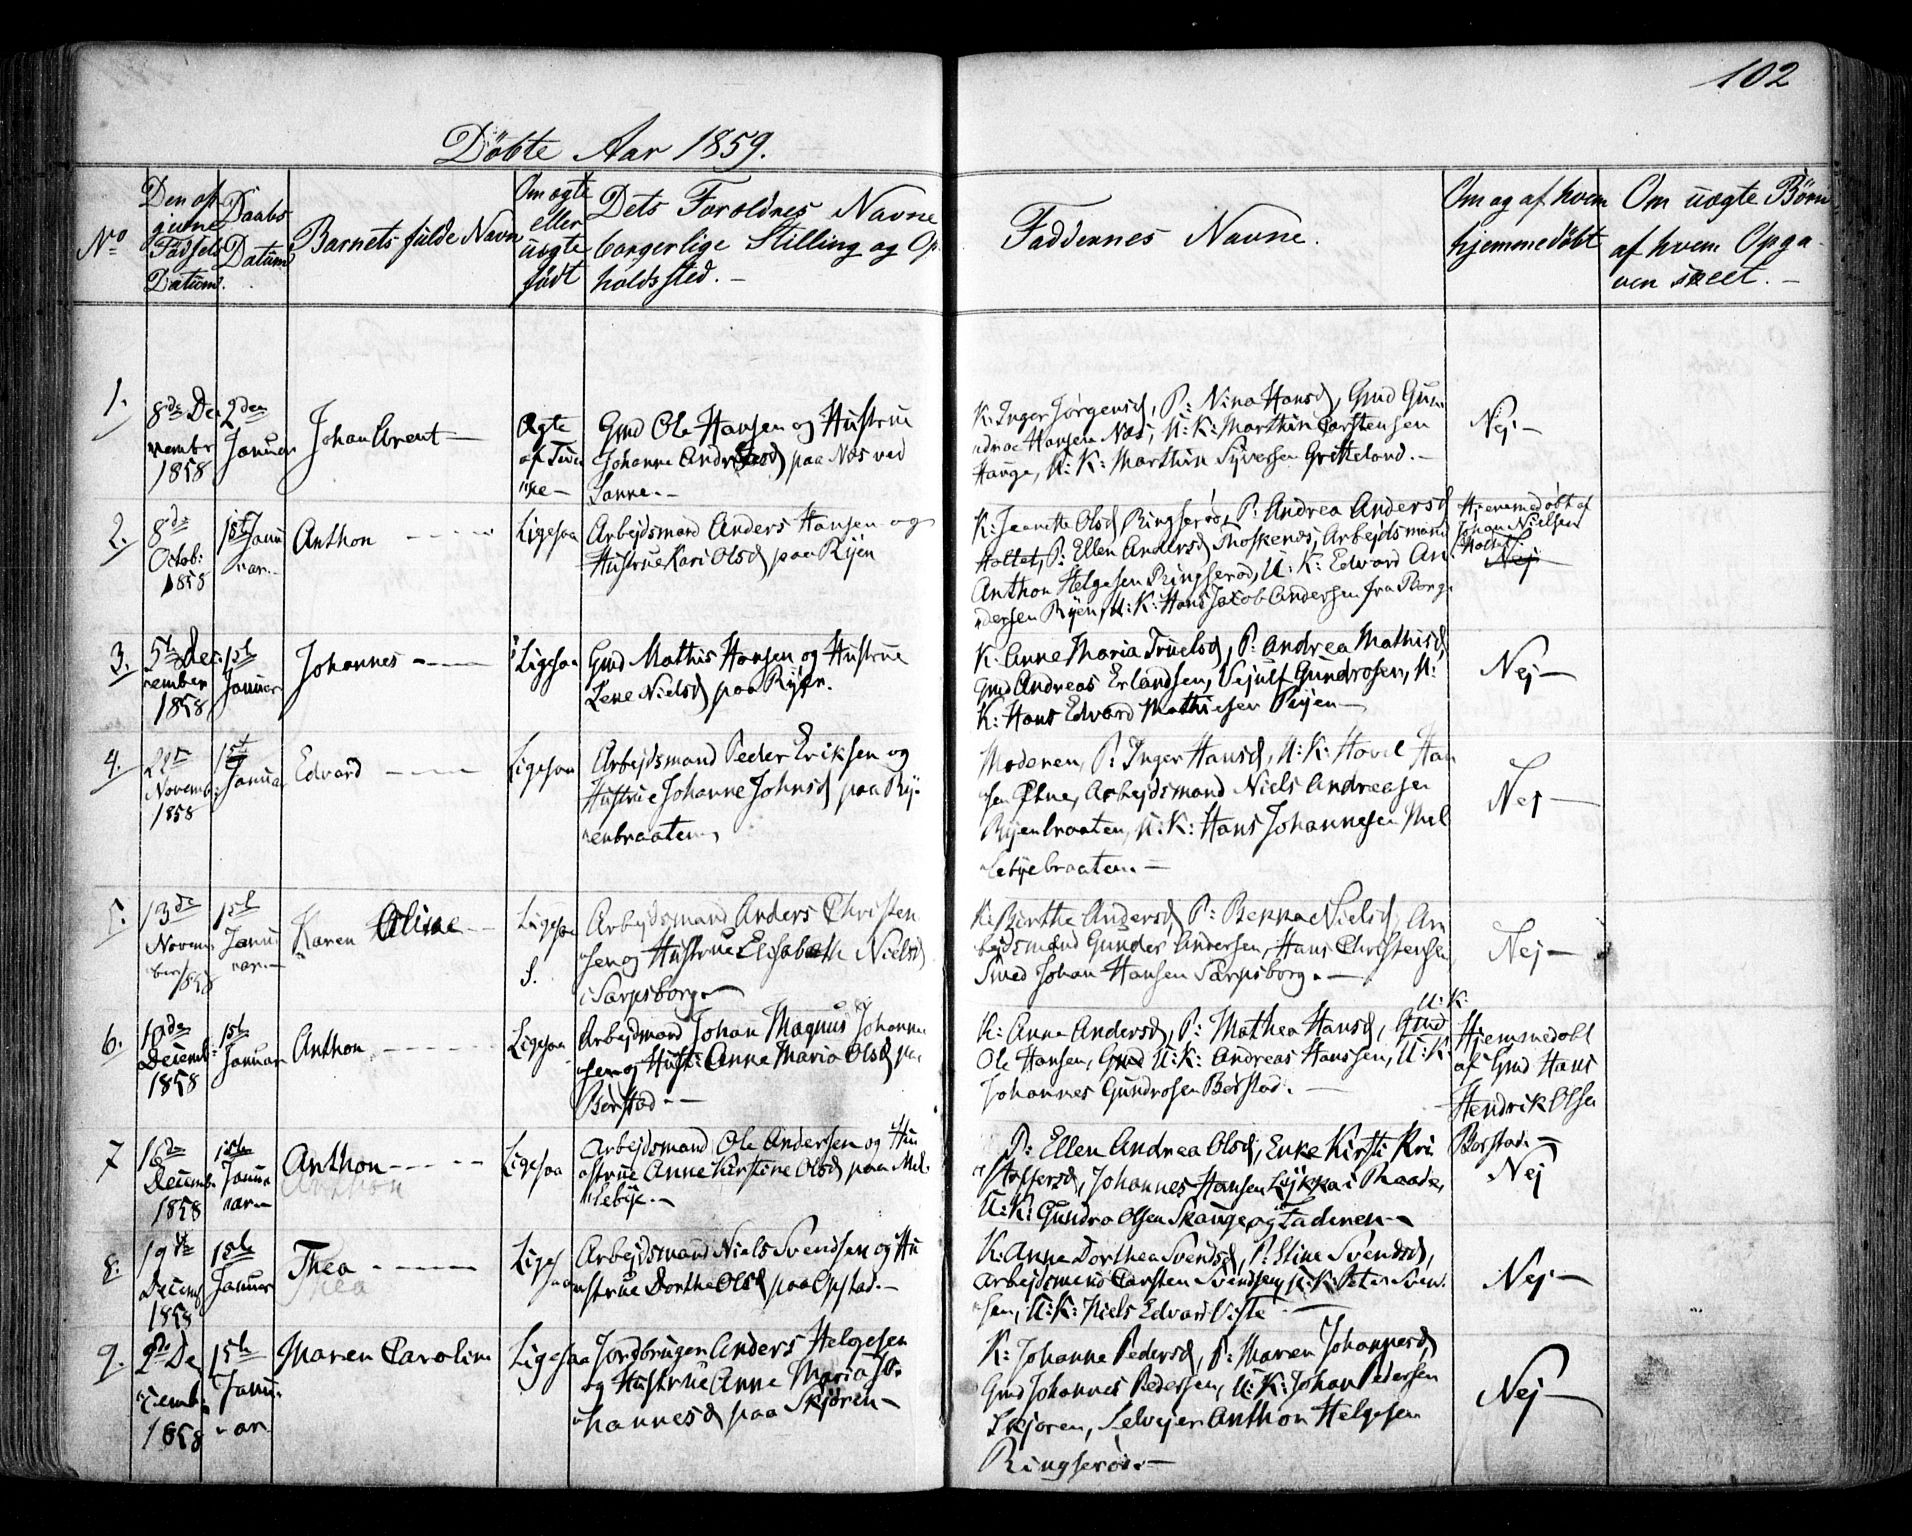 102
Döbte Aar 1859.
No
Den op
givne
Fødsels
Datum.
Daabs
Datum
Barnets fulde Navn
Om ægte
eller
uægte
født
Dets Foroldres Navne
borgerlige Stilling og Op
holdssted. -
Faddernes Navne.
Om og af hvem
hjemmedöbt
Om uægte Börn
af hvem Opga-
ven skeet. -
1.
8de De
cember
1858
2den
Januar
Johan Arent
Ægte
Gmd Ole Hansen og Hustrue
Johanne Andreasd paa Næs ved
Sanne. -
K: Inger Jörgensd, P: Nina Hansd, Gmd Gun
Hansen Næs, U: K: Marthin Carstensen
Hauge, U: K: Marthin Syversen Gretteland. -
Nej -
2.
8de
Octob:
1858
1ste Janu
ar. -
Anthon
Ligesaa
Arbejdsmand Anders Hansen og
Hustrue Kari Olsd paa Ryen
K: Jeanette Olsd Ringseröd, P: Andrea Andersd
Holtet, P: Ellen Andersd Moskenæs, Arbejdsmand
Anthon Helgesen Ringseröd, U: K: Edvard An
dersen Ryen, U: K: Hans Jacob Andersen fra Borge
Hjemmedöbt af
Johan Nielsen
Nej
3.
5te De
cember
1858
1ste
Januar
Johannes
Ligesaa
Gmd Mathis Hansen og Hustrue
Lene Nielsd paa Ryen.
K: Anne Maria Truelsd, P: Andrea Mathisd,
Gmd Andreas Erlandsen, Vejulf Gundrosen, U:
K: Hans Edvard Mathiesen Ryen
Nej -
4.
Novemb:
1858
1ste
Januar
Edvard
Ligesaa
Arbejdsmand Peder Eriksen og
Hustrue Johanne Johnsd paa Ry-
enbraaten,
Moderen, P: Inger Hansd, U: K: Hovel Han
sen Elne, Arbejdsmand Niels Andreasen
Ryenbraaten, U: K: Hans Johannesen Mel
lebyebraaten. -
Nej -
5.
13de
Novem
ber 1858
1ste
Janu
ar. -
Karen Oline
Ligesaa
Arbejdsmand Anders Christen
sen og Hustrue Elisabeth Nielsd
i Sarpsborg.
K: Birthe Andersd, P: Beppa Nielsd, Ar
bejdsmand Gunder Andersen, Hans Christensen
Smed Johan Hansen Sarpsborg. -
Nej -
6.
10de
Decemb:
1858
1ste
Januar
Anthon
Ligesaa
Arbejdsmand Johan Magnus Johanne
sen og Hust: Anne Maria Olsd paa
Børstad. -
U: K:
K: Anne Andersd, P: Mathea Hansd, Gmd
Ole Hansen, Gmd U: K: Andreas Hanssen, U: K:
Johannes Gundrosen Børstad. -
Hjemmedøbt
af Gmd Hans
Hendrik Olsen
Borstad. -
7
16de
Decemb.
1858
1ste
Janu
ar
Anthon
Ligesaa
Arbejdsmand Ole Andersen og Hu
strue Anne Kirstine Olsd paa Mel-
lebye. -
P: Ellen Andrea Olsd, Enke Kirsti Kri
stoffersd, Johannes Hansen Lykka i Raade,
U: K: Gundro Olsen Skauge og Faderen -
Nej
8.
19de
Decemb
1858
1ste
Januar
Thea
Ligesaa
Arbejdsmand Niels Svendsen og Hu
strue Dorthe Olsd paa Opstad. -
K: Anne Dorthea Svendsd, P: Stine Svendsd,
Arbejdsmend Carsten Svendsen, U: K: Peter Sven
sen, U: K: Niels Edvard Viste
Nej -
9.
2de De
cemb.
1858
15de
Janu-
ar
Maren Caroline
Ligesaa
Jordbruger Anders Helgesen
og Hustrue Anne Maria Jo-
hannesd paa Skjören -
K: Johanne Pedersd, P: Maren Johannesd,
Gmd Johannes Pedersen, U: K: Johan Pedersen
Skjoren, Selvejer Anthon Helgesen
Ringseröd. -
Nej -